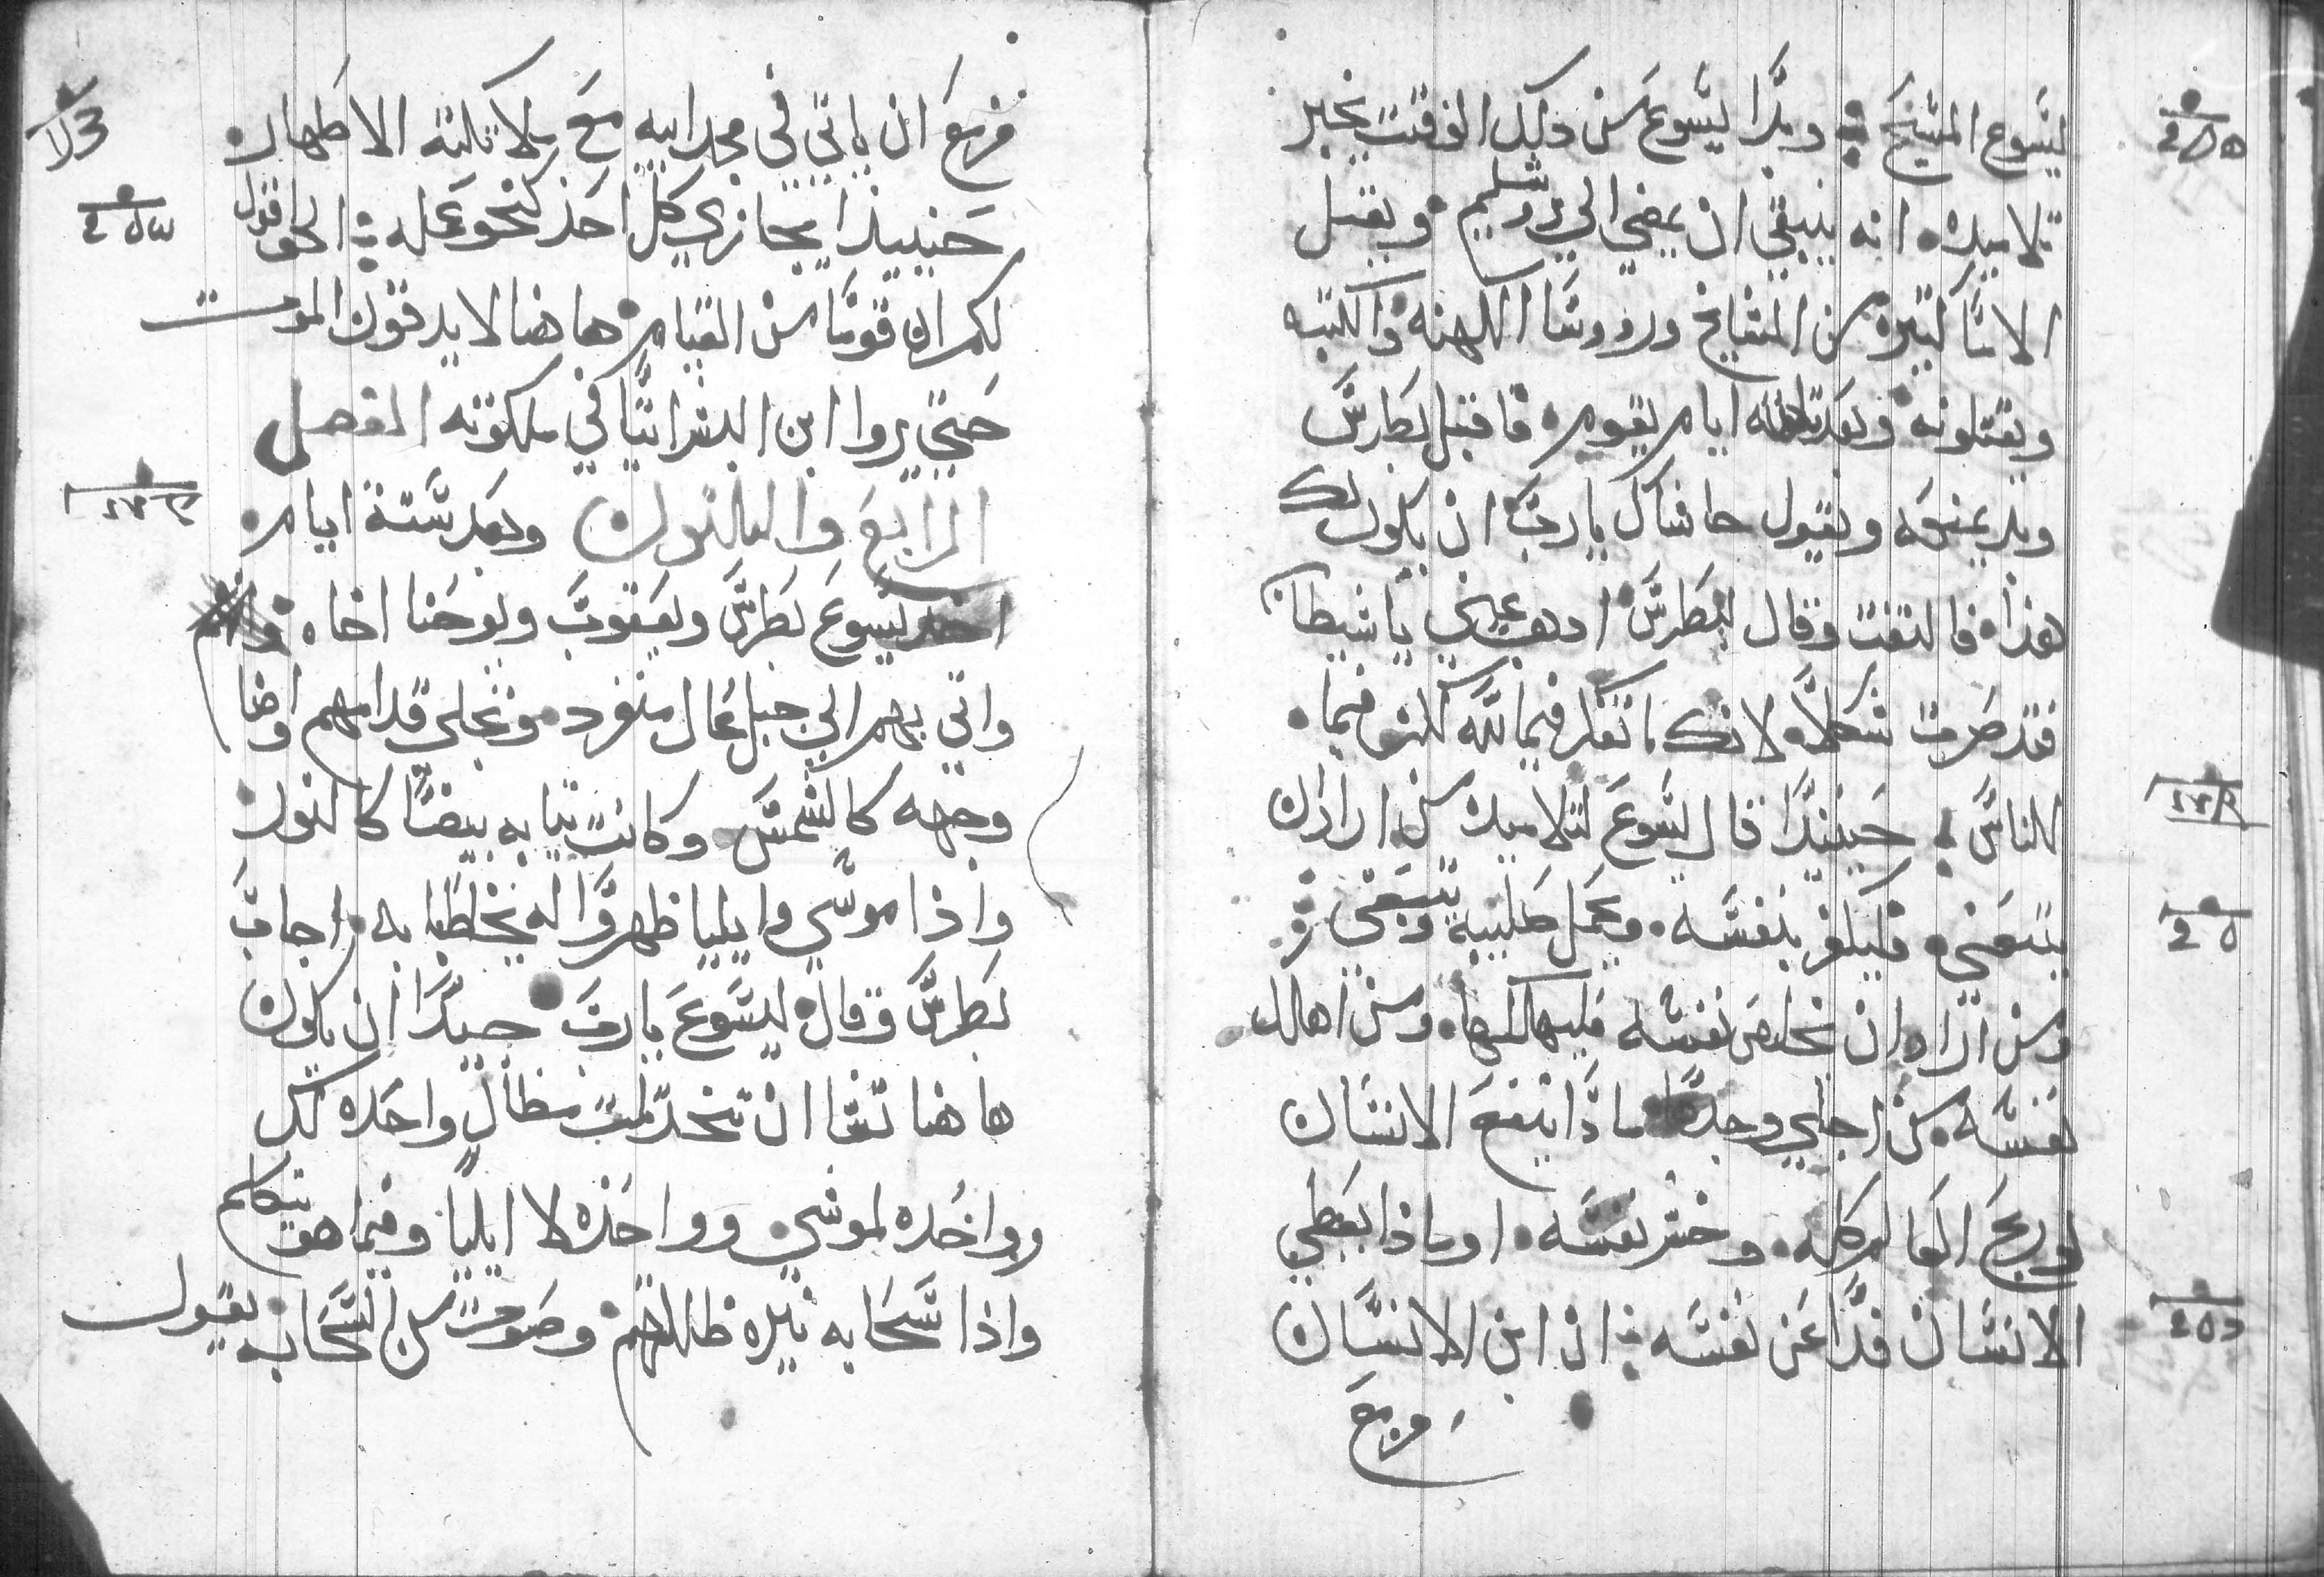 يسوع المسيح وبدا يسوع من ذلك الوقت يخبر
تلاميده انه ينبغي ان يمضي الي يروشليم ويقبل
الاما كثيره من المشايخ ورووسا الكهنه والكتبه
ويقتلونه وبعد تلاثه ايام يقوم فاقبل بطرس
وبد يمنعه ويقول حاشاك يارب ان يكون لك
هذا فالتفت وقال لبطرس ادهب عني ياشيطان
فقد صرت شكا لانك ما تفكر فيما لله لكن فيما
للناس حينيدا قال يسوع لتلاميده من اراد ان
يتبعني فليكفر بنفسه ويحمل صليبه ويتبعني
ومن اراد ان يخلص نفسه فليهلكها ومن اهلك
نفسه من اجلي وجدها ماذا ينفع الانسان
لو ربح العالم كله وخسر نفسه او ماذا يعطي
الانسان فدا عن نفسه ان ابن الانسان
مزمع
مزمع ان ياتي في مجد ابيه مع ملايكته الاطهار
حينيذا يجازي كل احد كنحو عمله الحق اقول
لكم ان قوما من القيام هاهنا لا يدقون الموت
حتي يروا ابن البشر اتيا في ملكوته الفصل
الرابع والثالثون وبعد ستة ايام
اخد يسوع بطرس ويعقوب ويوحنا اخاه
واتي بهم الي جبل عال منفرد وتجلي قدامهم واضا
وجهه كالشمس وكانت ثيابه بيضا كالنور
واذا موسي وايليا ظهروا له يخاطبا به اجاب
بطرس وقال ليسوع يارب جيدا ان يكون
هاهنا تشا ان نتخد تلت مظال واحده لك
وواحده لموسي وواحده لا ايليا وفيما هو يتكلم
واذا سحابه نيره ظللتهم وصوت من السحاب يقول